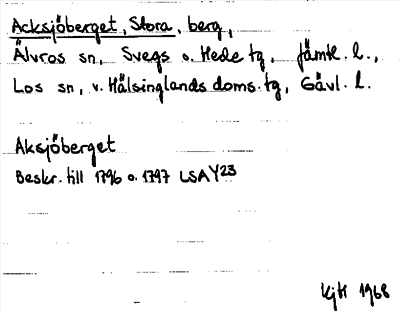 Acksjöberget, Stora, berg,
Älvros sn, Svegs o. Hede tg, Jämtl. l.,
Los sn, v. Hälsinglands doms. tg, Gävl. l.
Aksjöberget
Beskr. till 1796 o. 1797 LSA Y23
KjH 1968